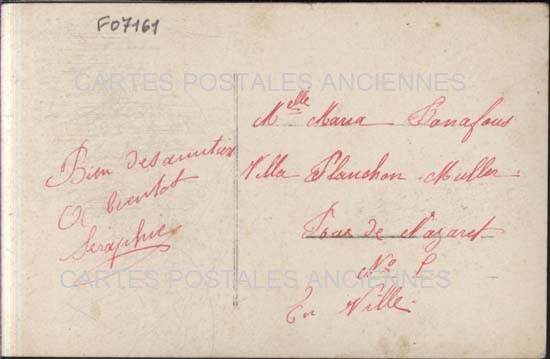 F07161
CARTES POSTALES ANCIENNES
Bien des amitiés
A bientot
Séraphie
Melle Maria Bonafous
Villa Planchon-Muller
de Nazaret
No
En Ville.
CARTES POSTALES ANCIENNES